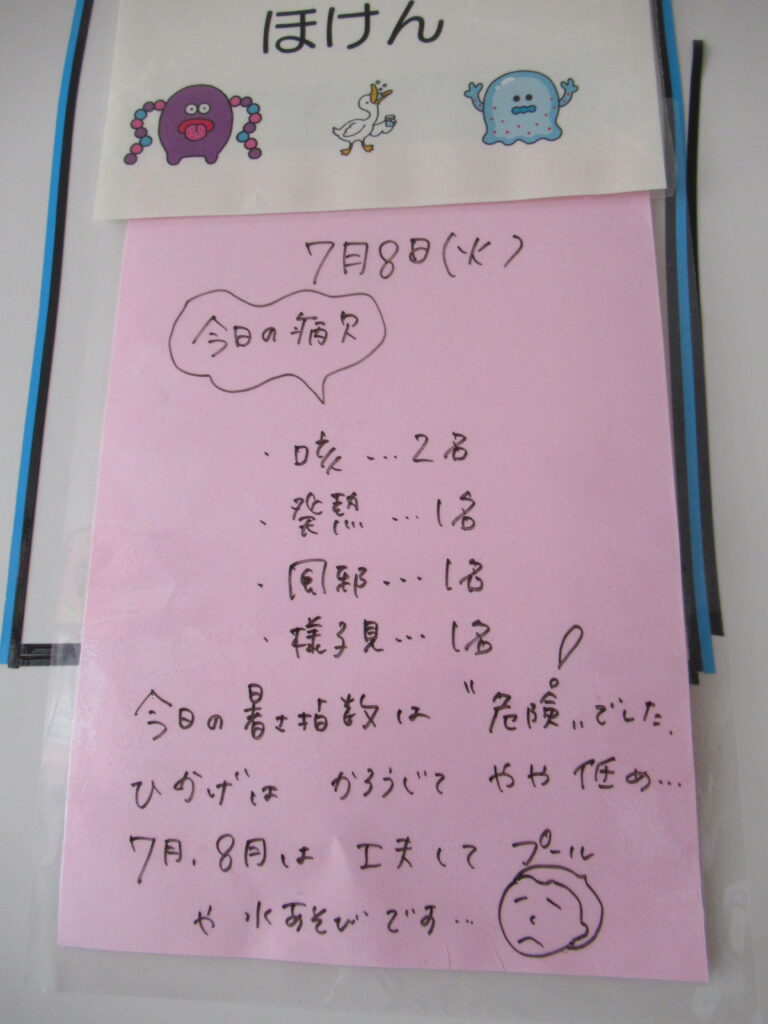 ほけん
7月8日(火)
今日の病欠
・咳…2名
・発熱…1名
・風邪…1名
・様子見…1名
今日の暑さ指数は〝危険〟でした!
ひかげは かろうじて やや低め…
7月、8月は 工夫して プール
や 水あそび です…